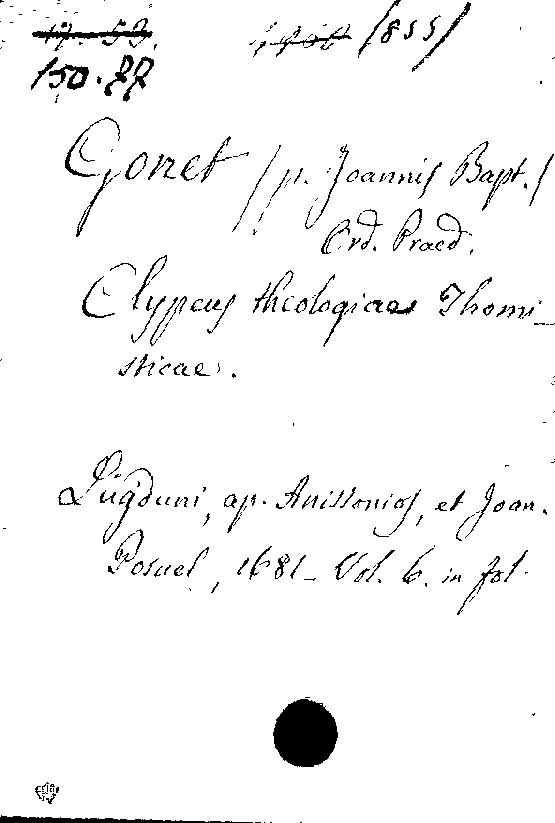 17. 53.
150. 77 /855/
Gonet /p. Joannis Bapt./
Ord. Praed.
Clypeus theologiae Thomi-
sticae.
Lugduni, ap. Anissonios, et Joan.
Posuel, 1681 - Vol. 6. in fol.